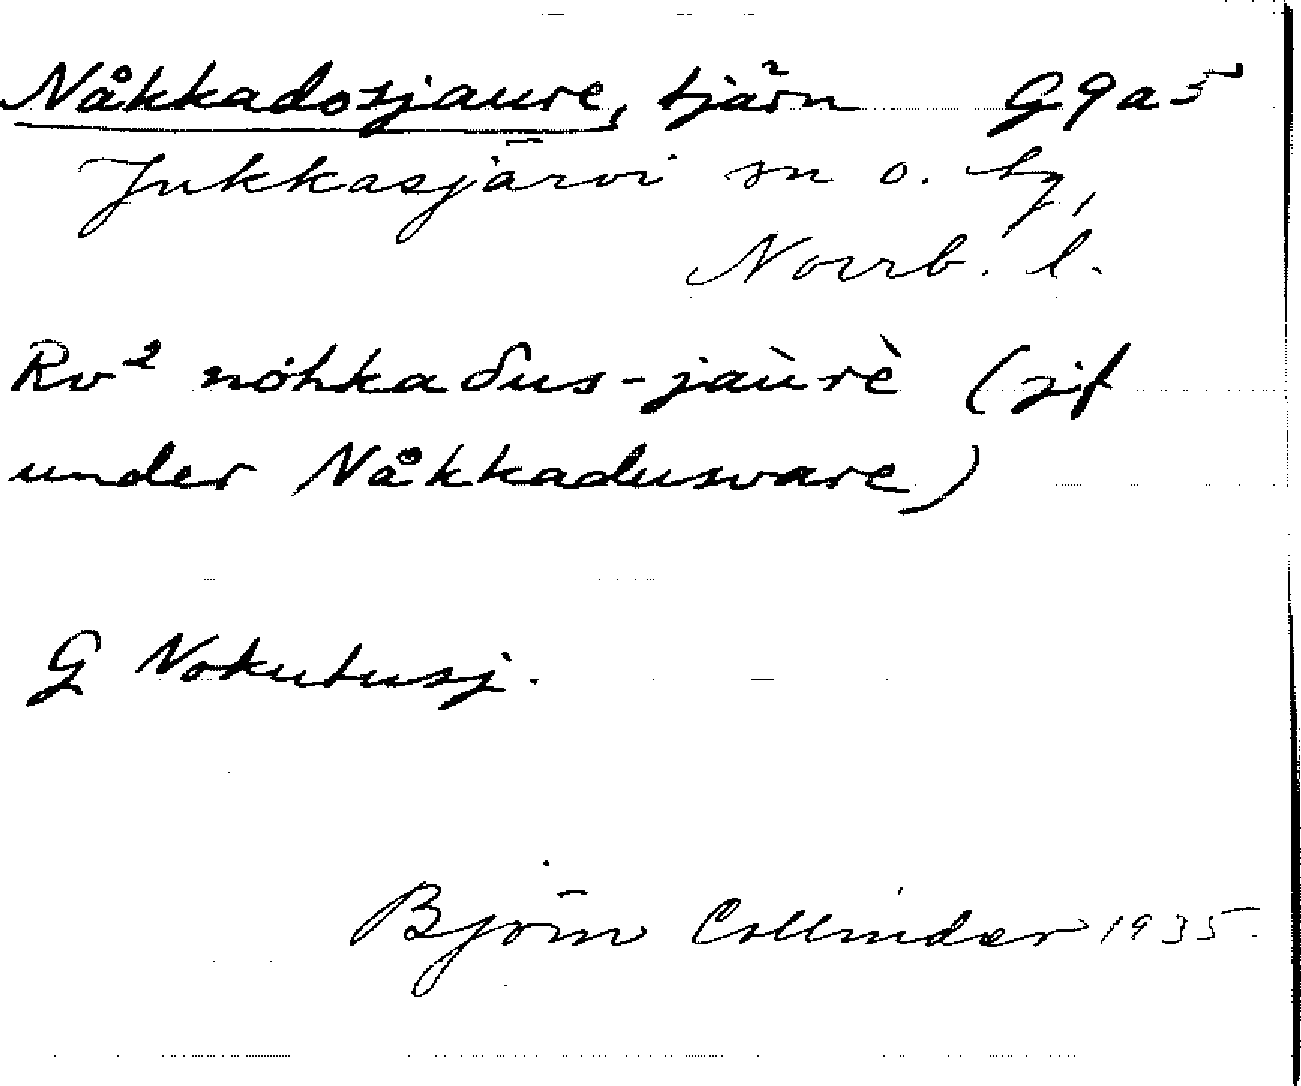 Nåkkadosjaure, tjärn G9a5
Jukkasjärvi sn o. tg,
Norrb. l.
Rv² nóhkaδus-jaùrè (jif
under Nåkkadusvare)
G Nokutusj.
Björn Collinder 1935.